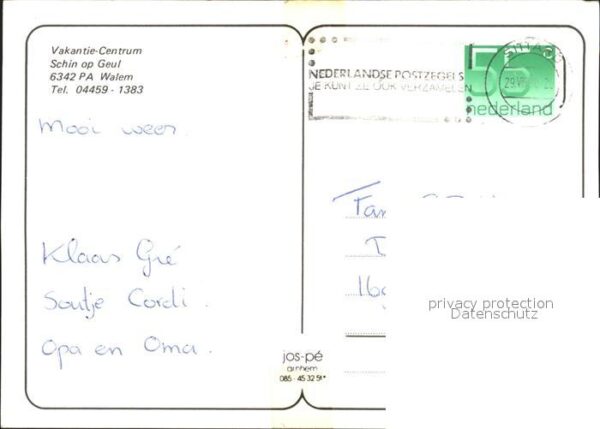 Vakantie-Centrum
Schin op Geul
6342 PA Walem
Tel. 04459 - 1383
NEDERLANDSE POSTZEGELS
JE KUNT ZE OOK VERZAMELEN
55
nederland
Mooi weer.
Klaas Gré
Soutje Cordi.
Opa en Oma.
Fam
privacy protection
Datenschutz
jos-pé
arnhem
085 - 45 32 51*